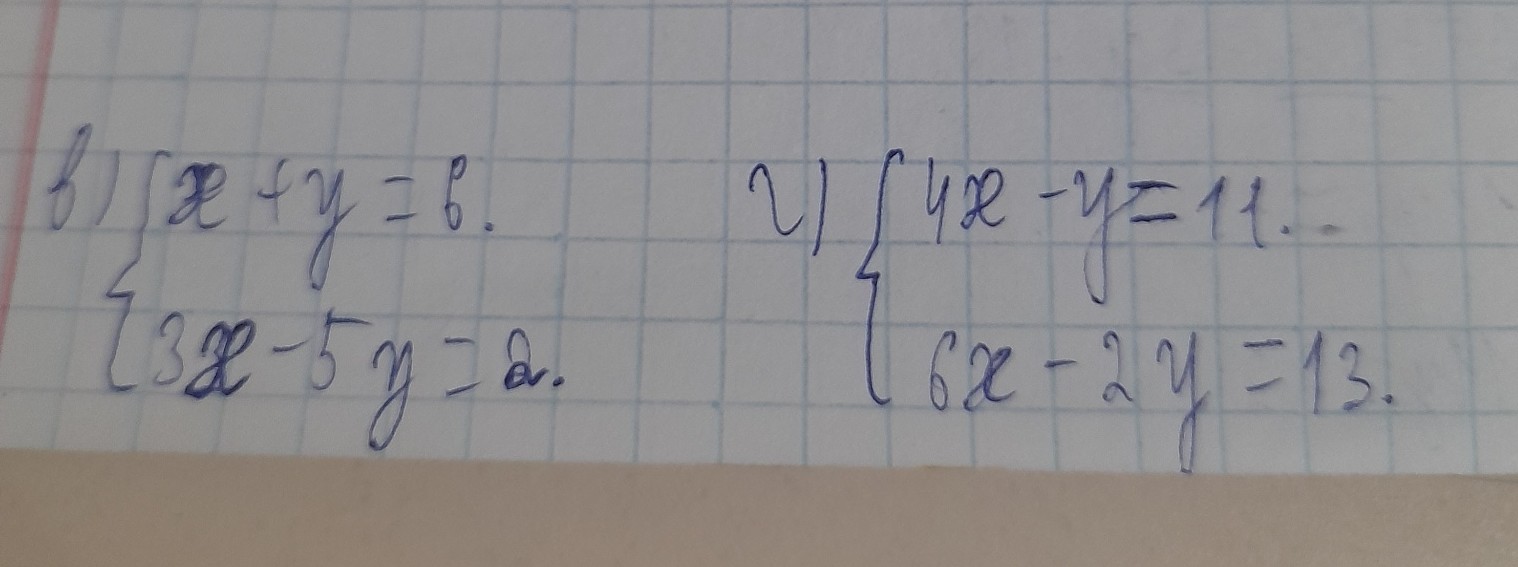 в) { x + y = 6.
3x - 5y = 2.
г) { 4x - y = 11.
6x - 2y = 13.